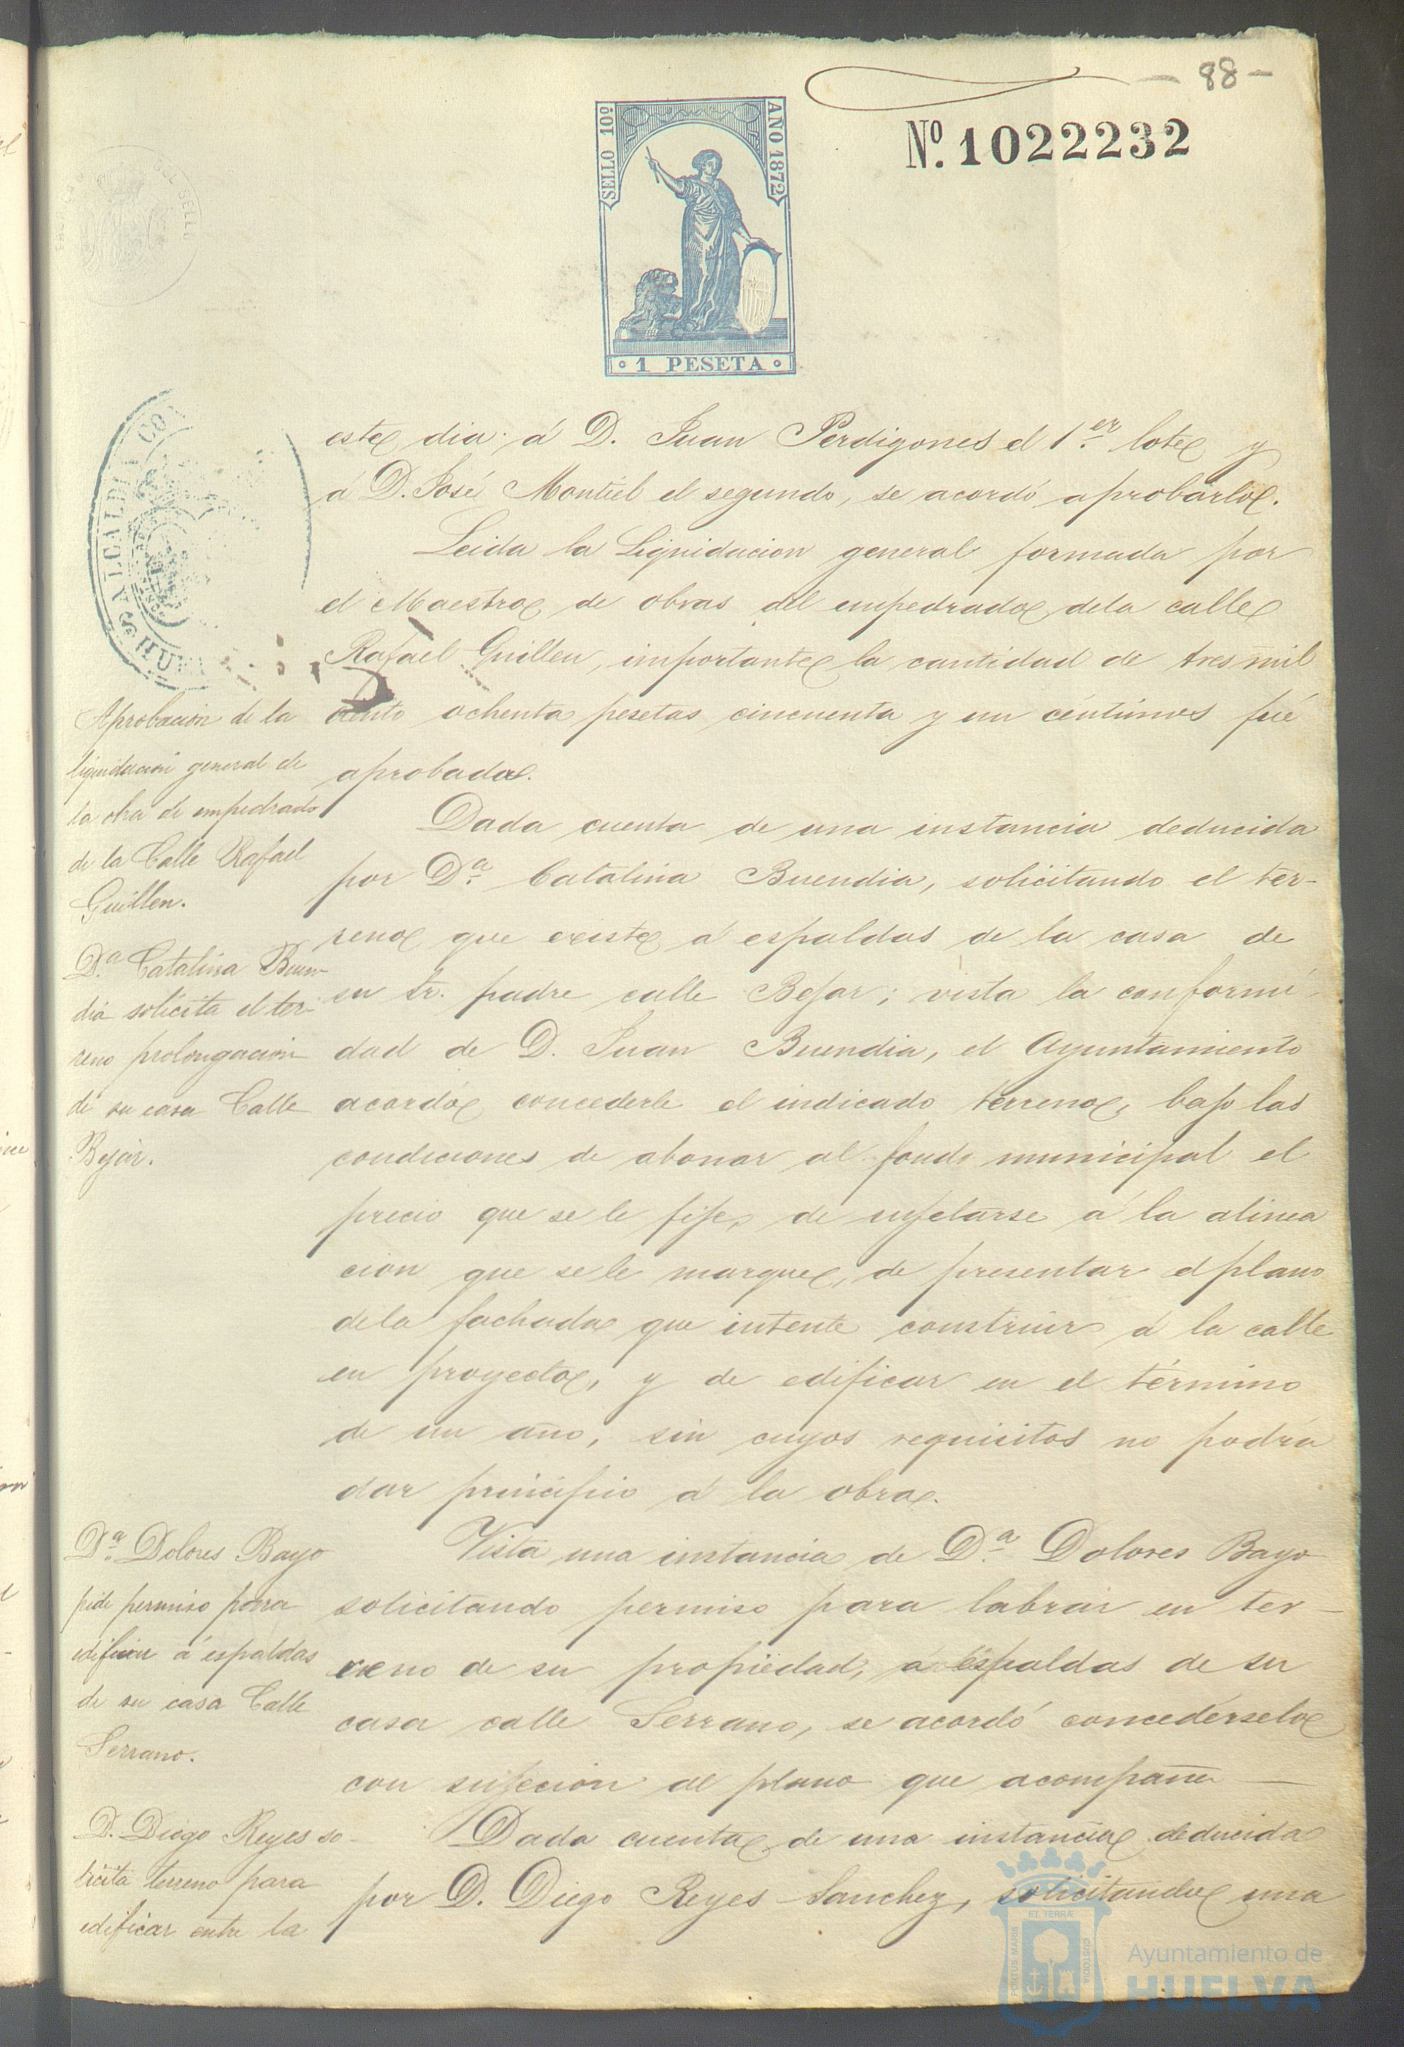 - 88 -
SELLO 10º
AÑO 1872
Nº. 1022232
1 PESETA
ALCALDIA CO
HUE
este dia á D. Juan Perdigones el 1.er lote y
á D. José Montiel el segundo, se acordó aprobarlo.
Leida la Liquidacion general formada por
el Maestro de obras del empedrado dela calle
Rafael Guillen, importante la cantidad de tres mil
ciento ochenta pesetas cincuenta y un centimos fué
aprobada.
Aprobacion de la
liquidacion general de
la obra de empedrado
de la Calle Rafael
Guillen.
Dada cuenta de una instancia deducida
por D.ª Catalina Buendia, solicitando el ter-
reno que existe á espaldas de la casa de
su Sr. padre calle Bejar; vista la conformi-
dad de D. Juan Buendia, el Ayuntamiento
acordó concederle el indicado terreno, bajo las
condiciones de abonar al fondo municipal el
precio que se le fije, de sujetarse á la alinea
cion que sele marque, de presentar el plano
dela fachada que intente construir á la calle
en proyecto, y de edificar en el término
de un año, sin cuyos requisitos no podrá
dar principio á la obra.
D.ª Catalina Buen-
dia solicita el ter-
reno prolongacion
de su casa Calle
Bejar.
Vista una instancia de D.ª Dolores Bayo
solicitando permiso para labrar en ter-
reno de su propiedad, á espaldas de su
casa calle Serrano, se acordó concederselo
con sujecion al plano que acompaña
D.ª Dolores Bayo
pide permiso para
edificar á espaldas
de su casa Calle
Serrano.
Dada cuenta de una instancia deducida
por D. Diego Reyes Sanchez, solicitando una
D. Diego Reyes so-
licita terreno para
edificar entre la
PORTUS MARIS
ET TERRÆ
CUSTODIA
Ayuntamiento de
HUELVA